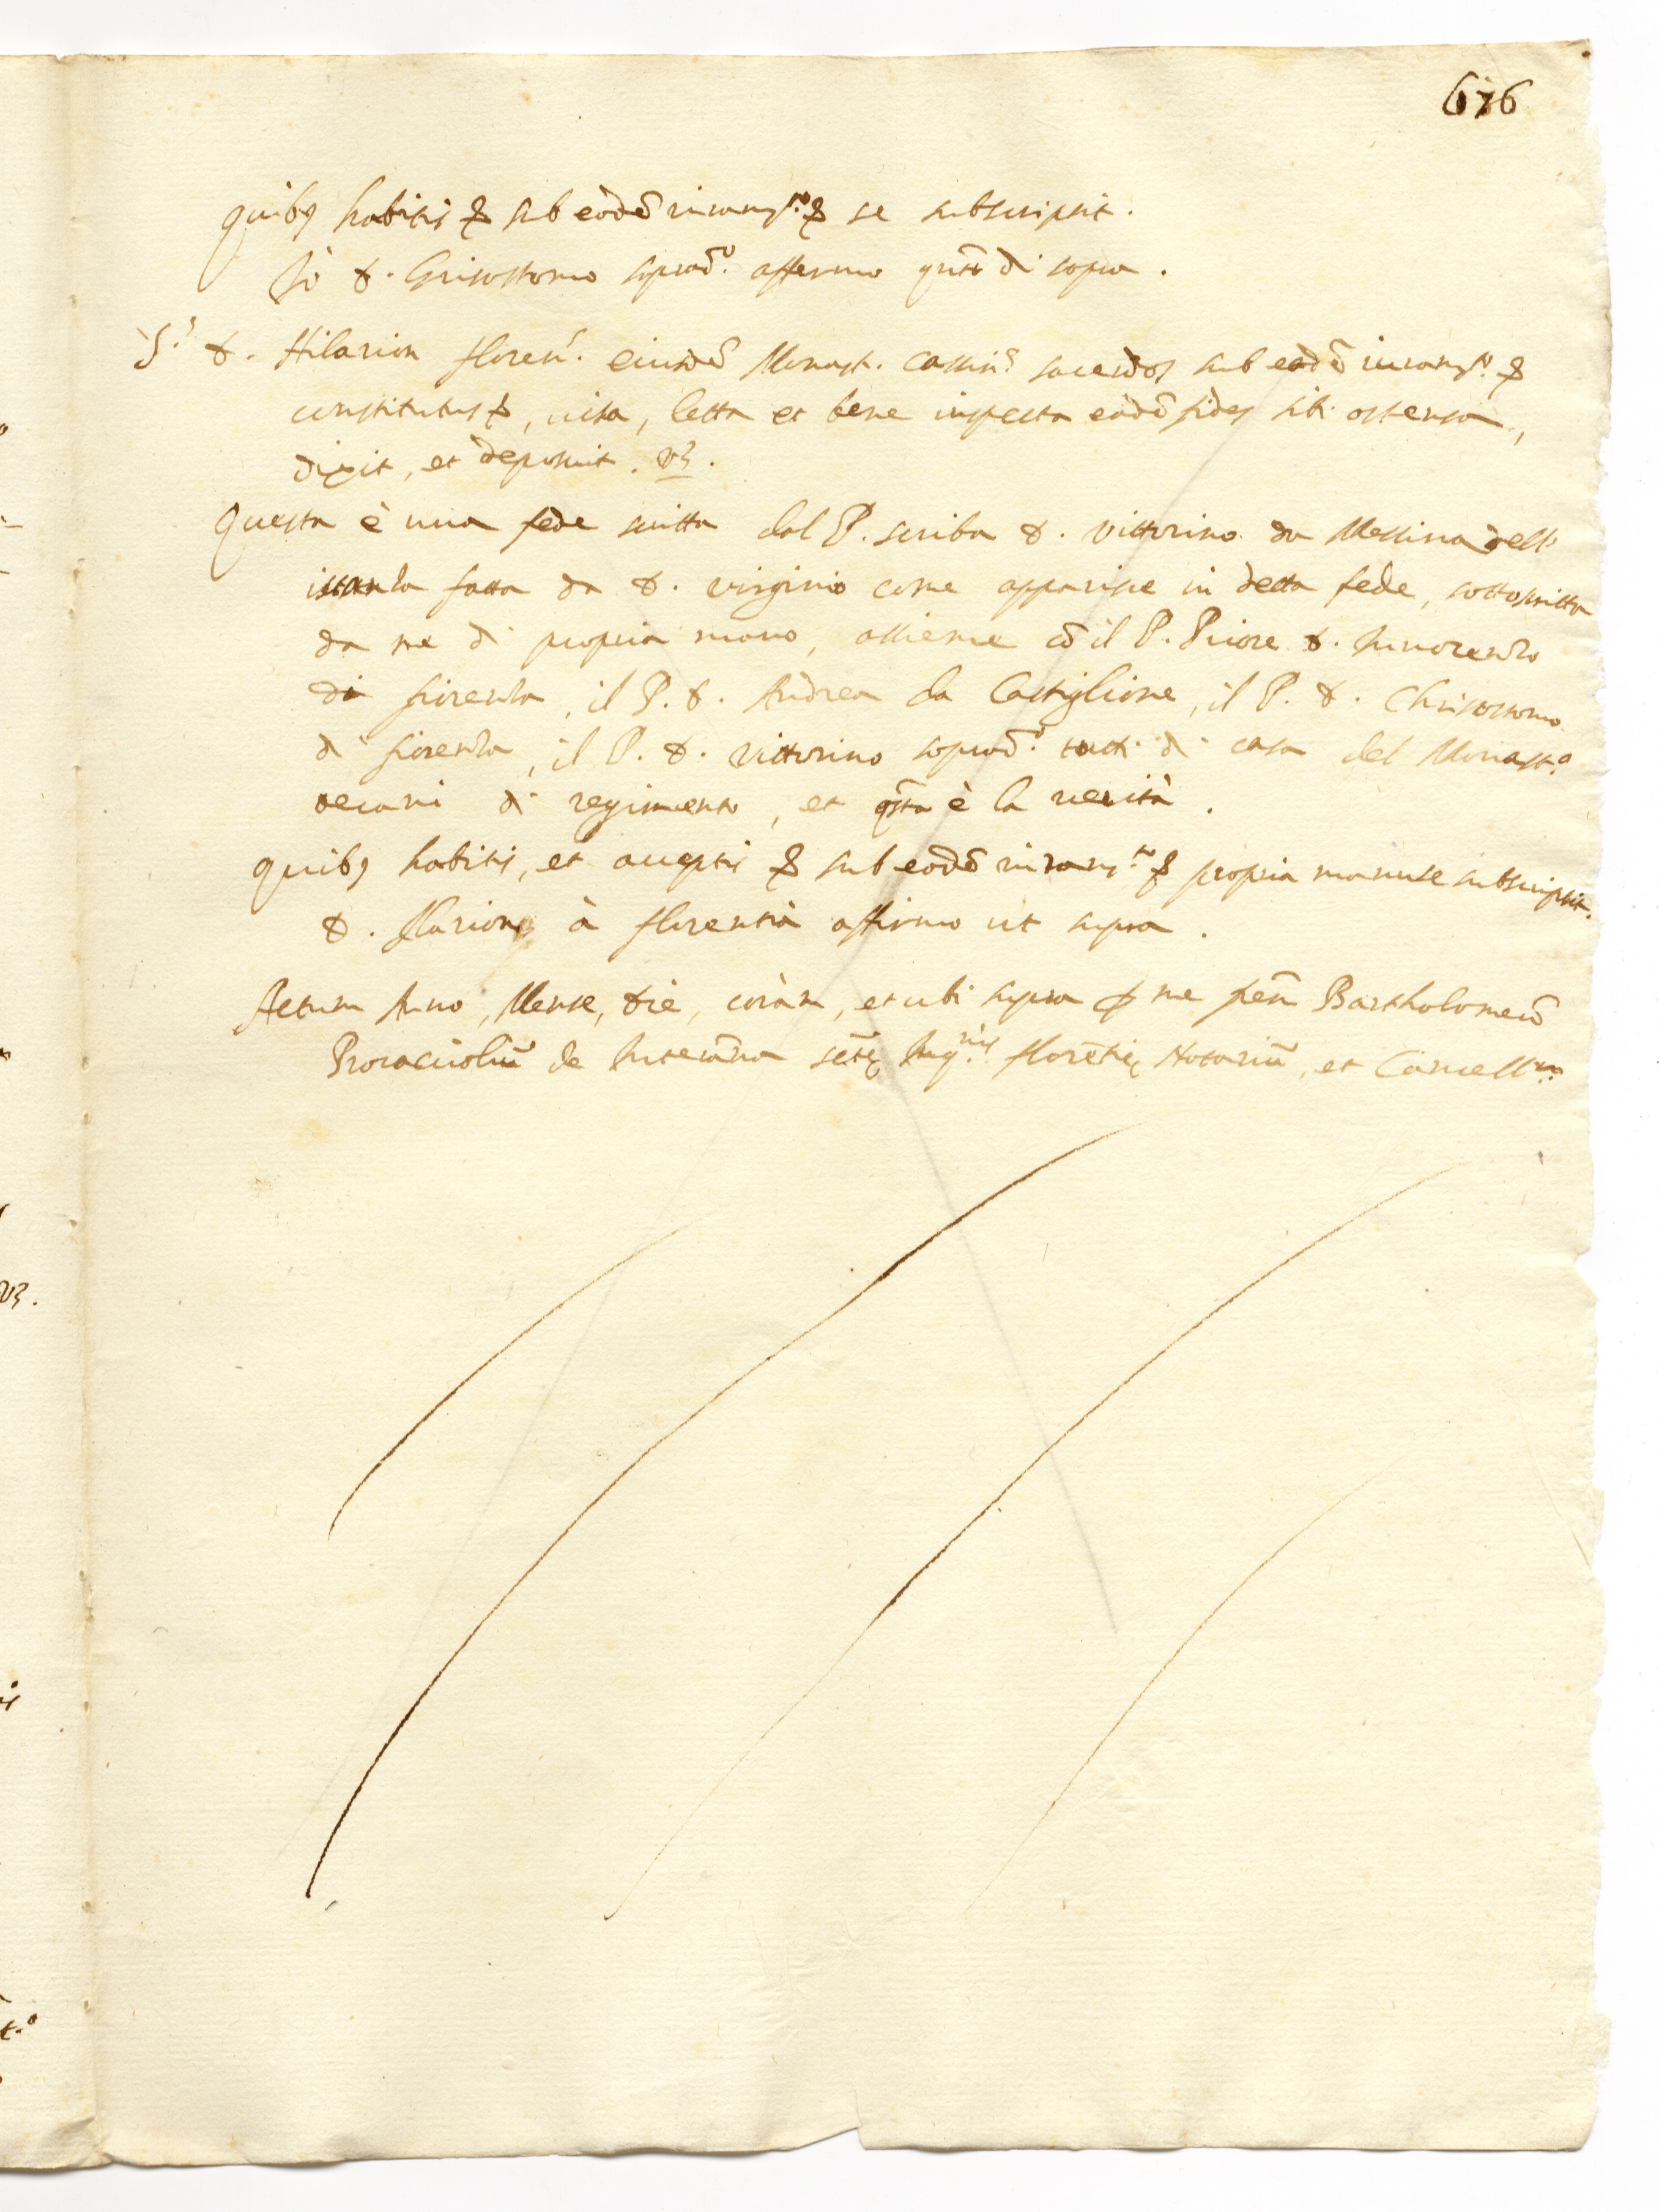 676
quibq habitis & sub eodē iuram.to & se subscripsit.
Jo D. Grisostomo soprad.o affermo qnto di sopra.
S.r D. Hilarion floren. eiusdē Monast. Cassin. sacerdos sub eodē iuram.to &
constitutus &, uisa, letta et bene inspecta eadē fides sibi ostensa,
dixit, et deposuit. vz.
Questa è una fede scritta dal P. scriba D. Vittorino da Messina dell'
istanza fatta da D. Virginio come apparisce in detta fede, sottoscritta
da me di propria mano, assieme cō il P. Priore D. Innocenzo
di fiorenza, il P. D. Andrea da Castiglione, il P. D. Chrisostomo
di fiorenza, il P. D. Vittorino soprad.o tutti di casa del Monast.o
decani di regimento, et qsta è la uerità.
quibq habitis, et acceptis & sub eodē iuram.to & propria manu se subscripsit.
D. Ilarionq à florentia affirmo ut supra.
Actum Anno, Mense, die, coràm, et ubi supra p me pēm Bartholomeū
de scte Inq.nis florētie Notariū, et Cancell.m
vz.